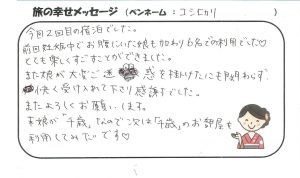 旅の幸せメッセージ（ペンネーム：コシヒカリ）
今月2回目の宿泊でした。
前回妊娠中でお腹にいた娘も加わり6名での利用でした♡
とても楽しくすごすことができました。
また娘が大変ご迷惑を掛けたにも関わらず、
快く受け入れて下さり感謝でした。
またよろしくお願いします。
末娘が「千歳」なので次は「千歳」のお部屋も
利用してみたいです♡